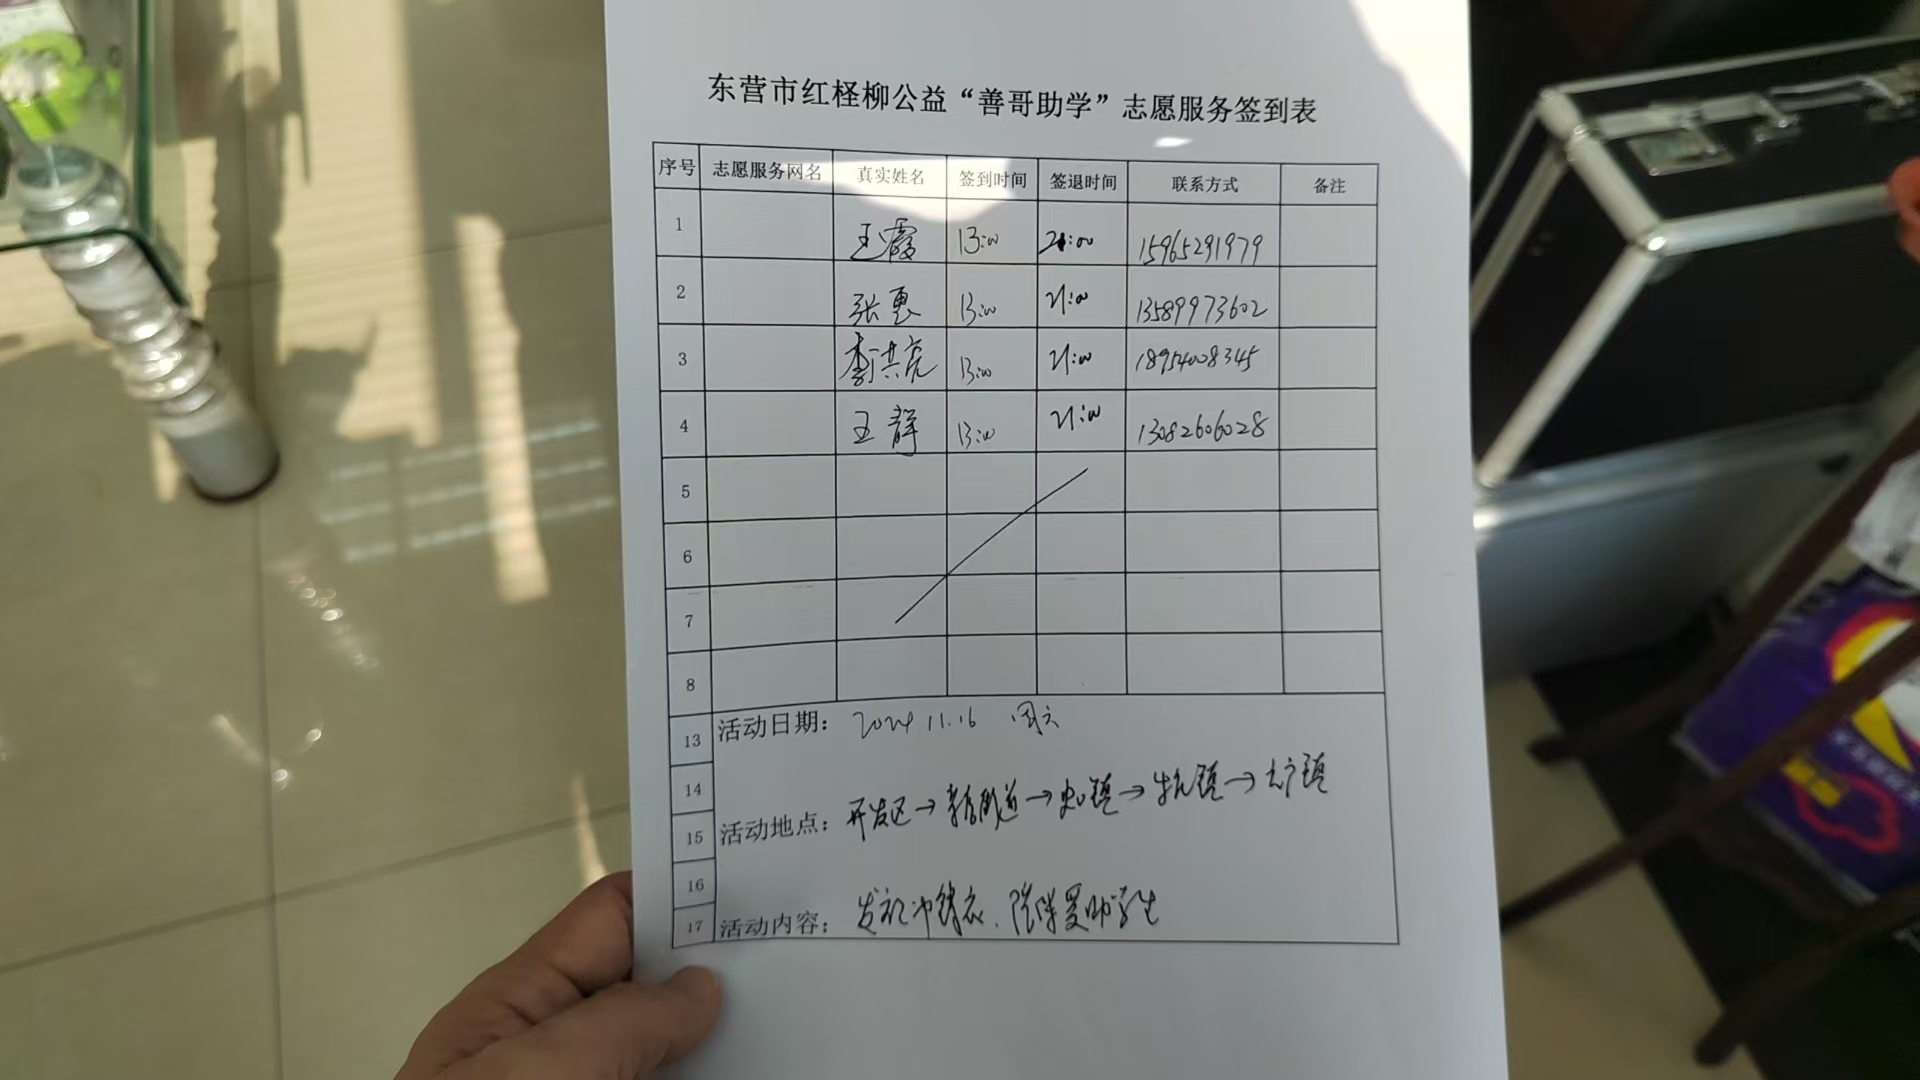 东营市红柽柳公益“善哥助学”志愿服务签到表
序号 志愿服务网名 真实姓名 签到时间 签退时间 联系方式 备注
1 王霞 13:00 21:00 15965291979
2 张惠 13:00 21:00 13589973602
3 李洪亮 13:00 21:00 18954008345
4 王静 13:00 21:00 13082606028
5
6
7
8
13 活动日期: 2024 11.16 周六
14
15 活动地点: 开发区→街道→镇→镇→镇
16
17 活动内容: 发放冲锋衣、受助学生